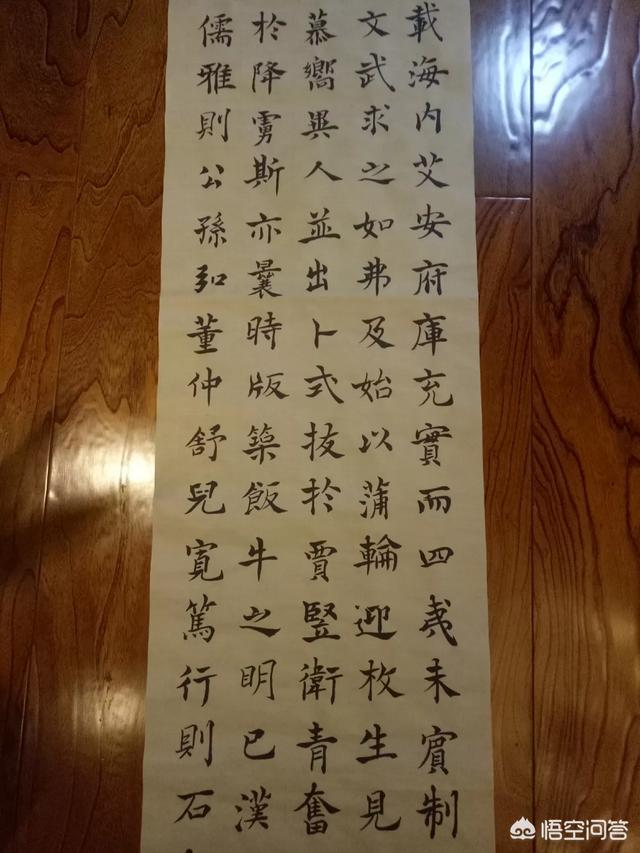 載海内艾安府庫充實而四夷未賓制
文武求之如弗及始以蒲輪迎枚生見
慕嚮異人並出卜式拔於賈豎衛青奮
於降虜斯亦曩時版築飯牛之明已漢
儒雅則公孫弘董仲舒兒寬篤行則石
悟空问答